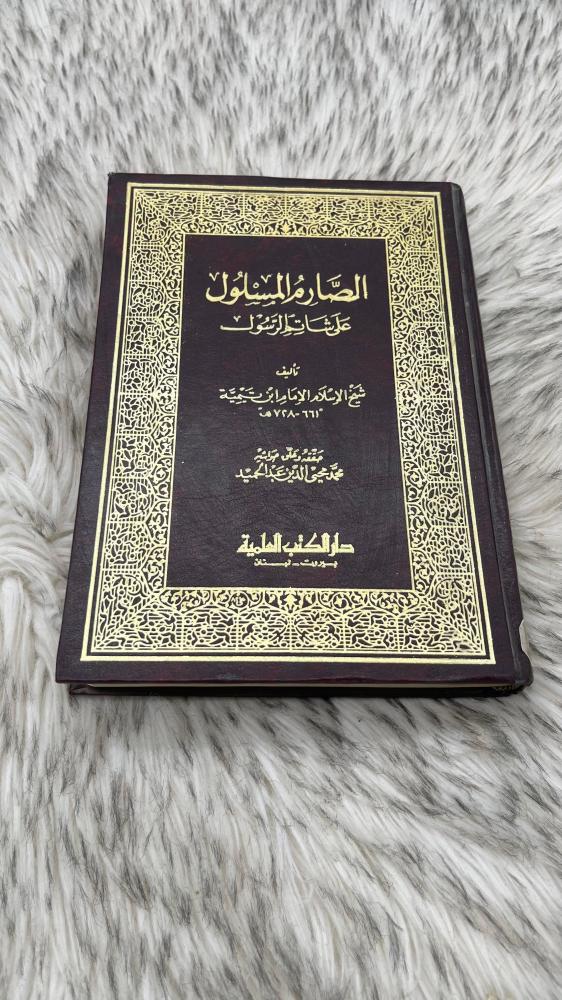 الصَّارِمُ المَسْلُول
عَلَى شَاتِمِ الرَّسُول
تأليف
شيخ الإسلام الإمام ابن تيمية
٦٦١ - ٧٢٨ هـ
حققه وعلق حواشيه
محمد محيي الدين عبد الحميد
دار الكتب العلمية
بيروت - لبنان